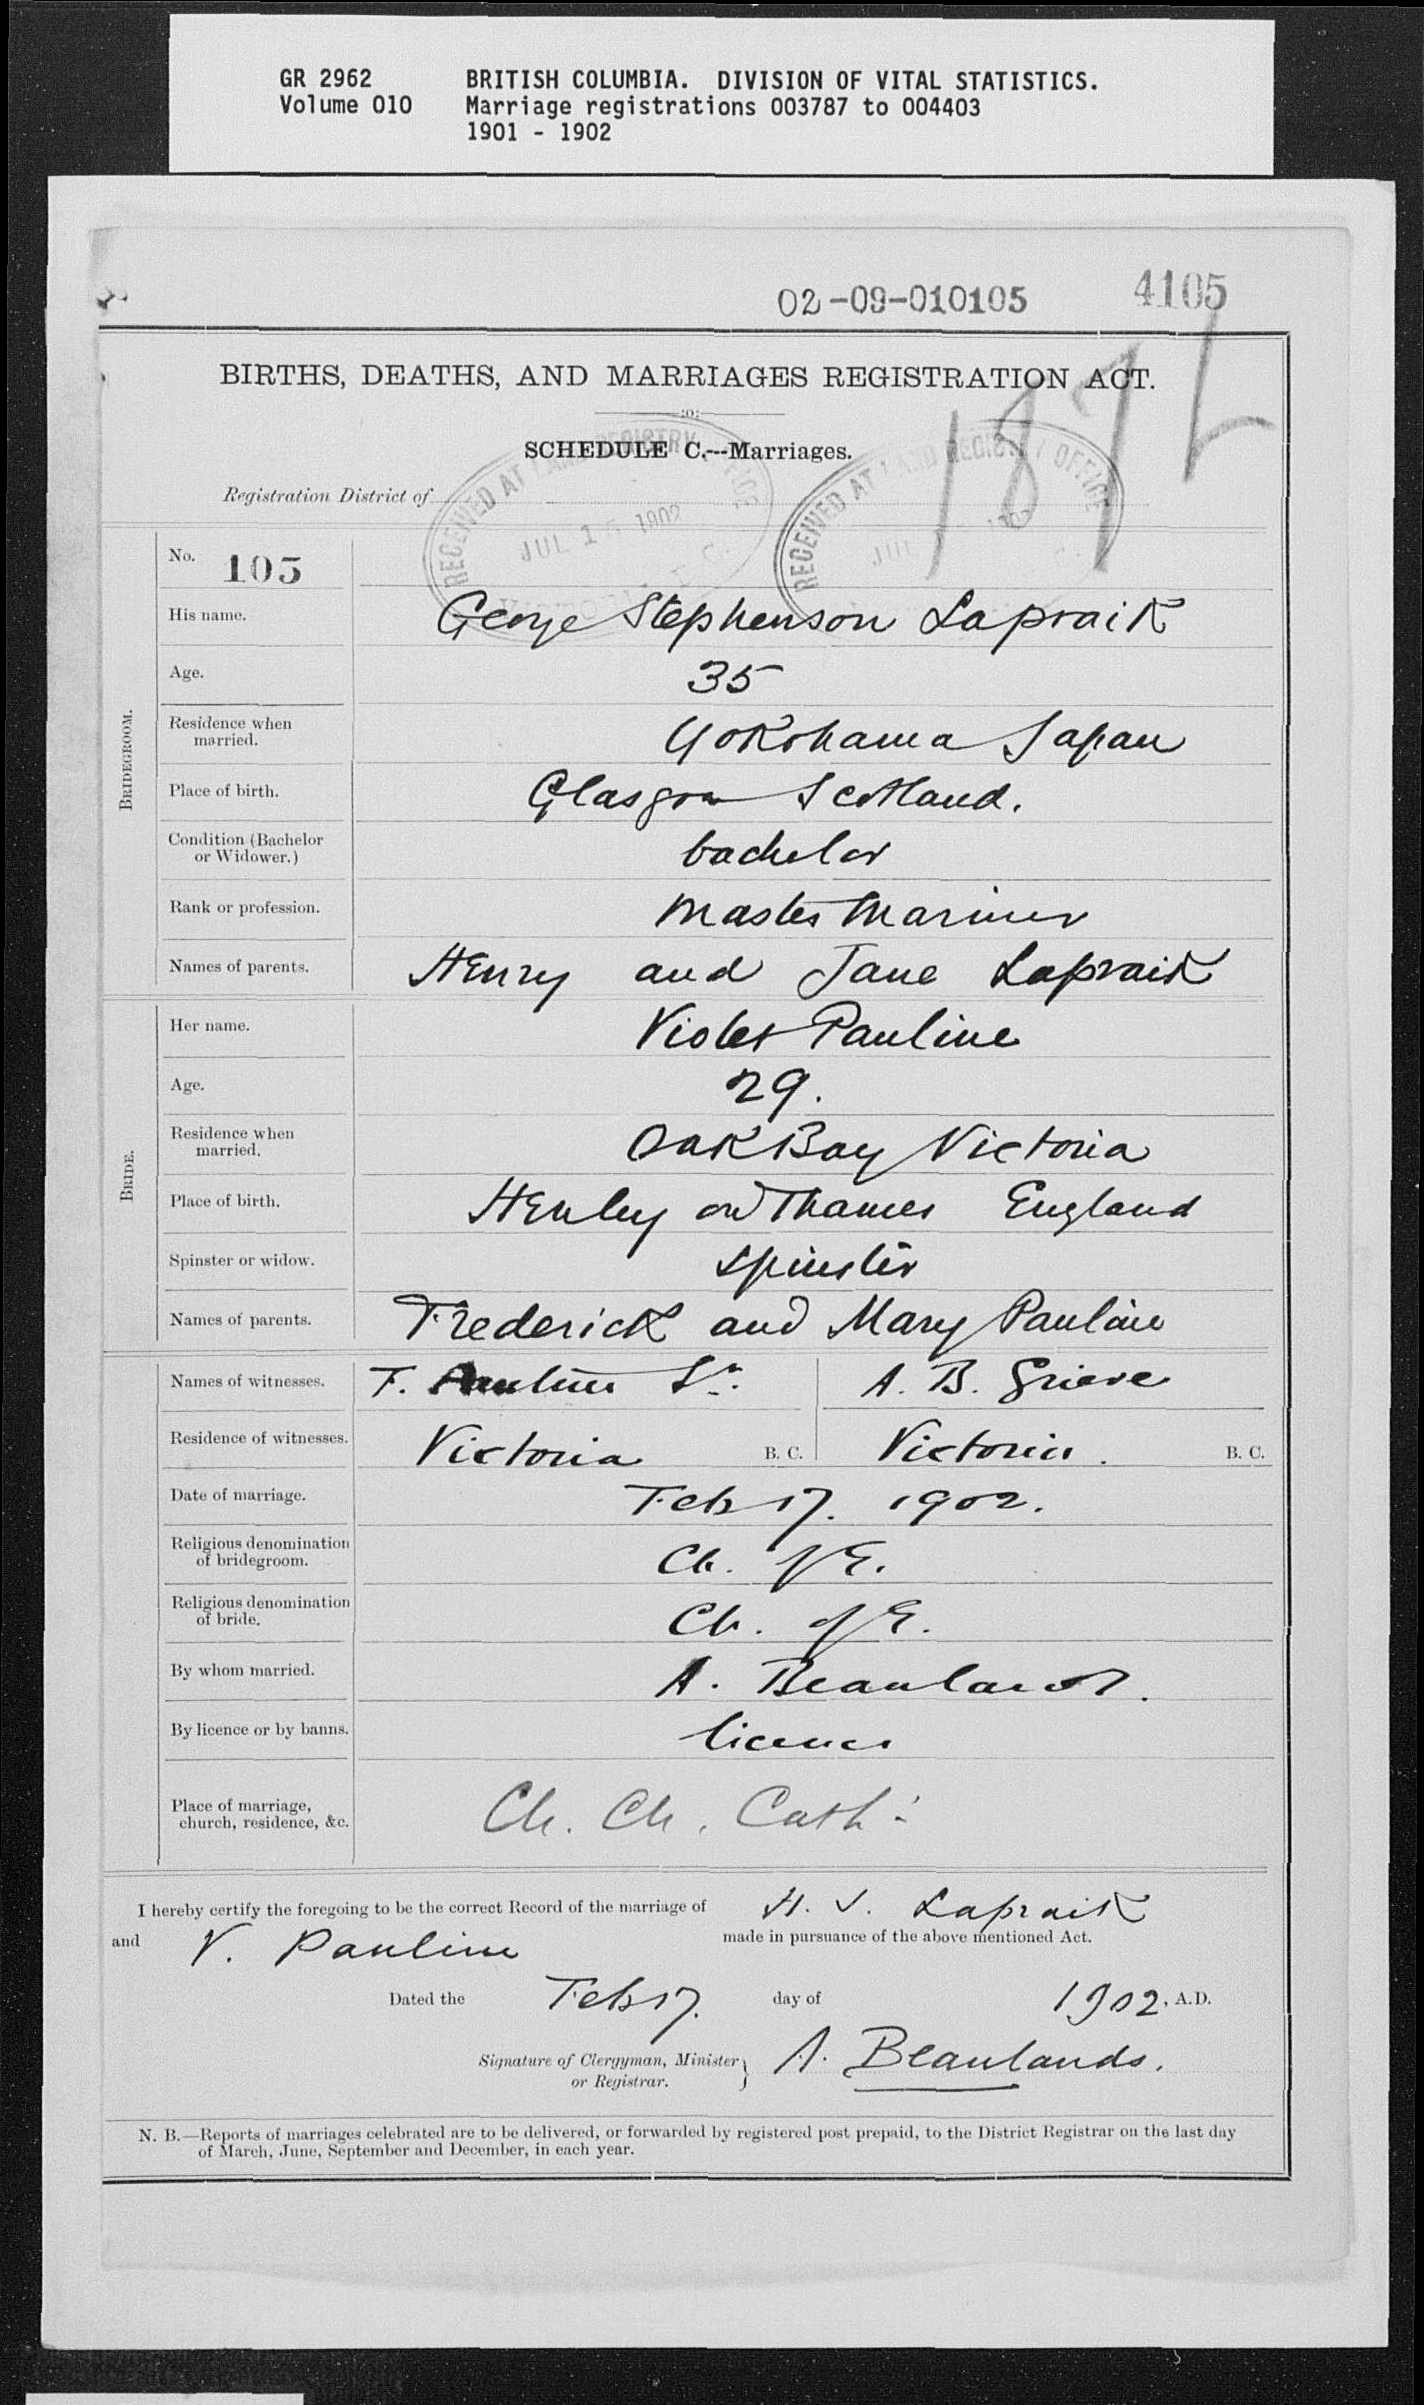 GR 2962 BRITISH COLUMBIA. DIVISION OF VITAL STATISTICS.
Volume 010 Marriage registrations 003787 to 004403
1901 - 1902
02-09-010105 4105
BIRTHS, DEATHS, AND MARRIAGES REGISTRATION ACT.
:o:
SCHEDULE C.---Marriages.
Registration District of
RECEIVED AT LAND REGISTRY
JUL 15 1902
RECEIVED AT LAND REGISTRY OFFICE
JUL 1902
BRIDEGROOM.
No. 105
His name. George Stephenson Lapraik
Age. 35
Residence when married. Yokohama Japan
Place of birth. Glasgow Scotland.
Condition (Bachelor or Widower.) bachelor
Rank or profession. Master Mariner
Names of parents. Henry and Jane Lapraik
BRIDE.
Her name. Violet Pauline
Age. 29.
Residence when married. Oak Bay Victoria
Place of birth. Henley on Thames England
Spinster or widow. spinster
Names of parents. Frederick and Mary Pauline
Names of witnesses. F. Pauline Sr. A. B. Grieve
Residence of witnesses. Victoria B. C. Victoria. B. C.
Date of marriage. Feb 17. 1902.
Religious denomination of bridegroom. Ch. of E.
Religious denomination of bride. Ch. of E.
By whom married. A. Beaulands.
By licence or by banns. licence
Place of marriage, church, residence, &c. Ch. Ch. Cath.
I hereby certify the foregoing to be the correct Record of the marriage of H. S. Lapraik
and V. Pauline made in pursuance of the above mentioned Act.
Dated the Feb 17. day of 1902, A.D.
Signature of Clergyman, Minister or Registrar. } A. Beaulands.
N. B.—Reports of marriages celebrated are to be delivered, or forwarded by registered post prepaid, to the District Registrar on the last day
of March, June, September and December, in each year.